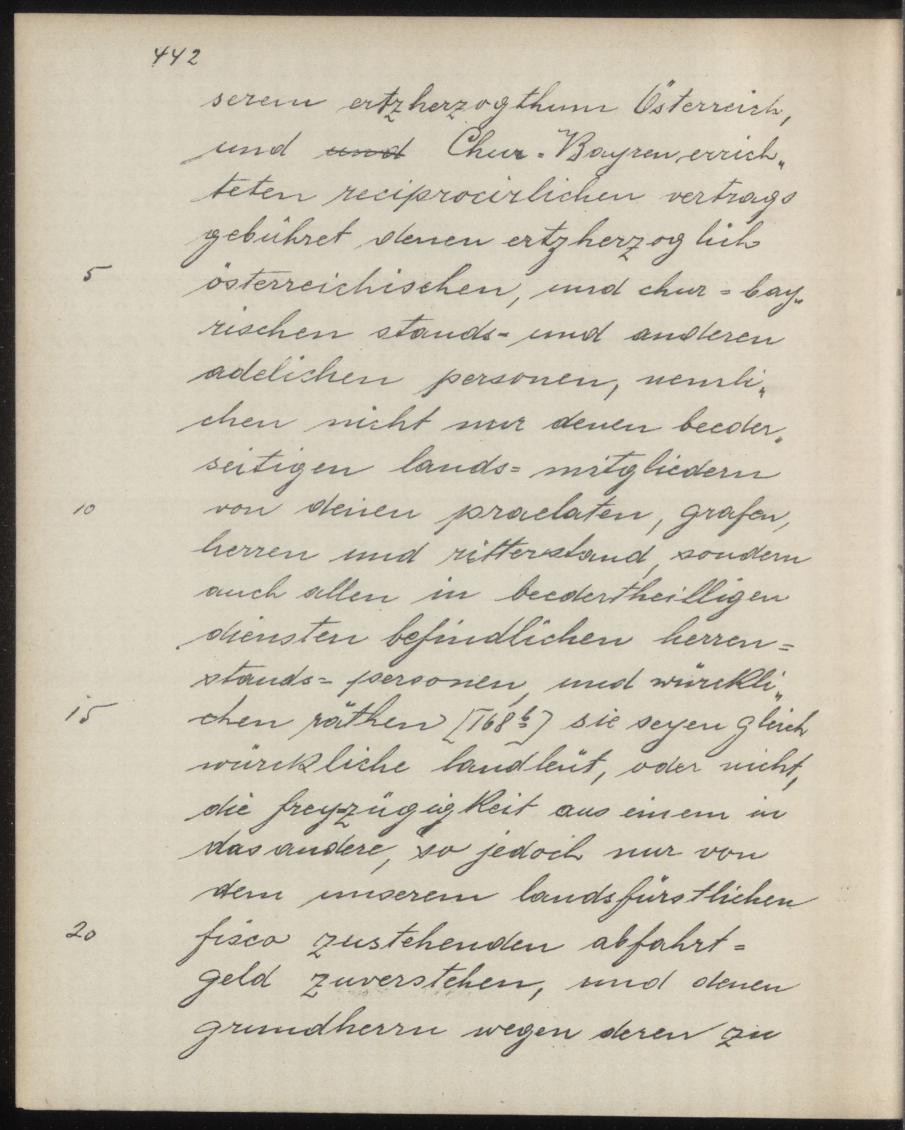 442
serem ertzherzogthum Österreich,
und ~~und~~ Chur-Bayren errich„
teten reciprocirlichen vertrags
gebühret denen ertzherzoglich
5 österreichischen, und chur=bay„
rischen stands- und anderen
adelichen personen, nemli„
chen nicht nur denen beeder„
seitigen lands= mitgliedern
10 von denen praelaten, grafen,
herren und ritterstand, sondern
auch allen in beedertheilligen
diensten befindlichen herren=
stands= personen, und würckli„
15 chen räthen [168b] sie seyen gleich
würckliche landleüt, oder nicht,
die frey-zügigkeit aus einem in
das andere, so jedoch nur von
dem unserem landsfürstlichen
20 fisco zustehenden abfahrt=
geld zuverstehen, und denen
grundherrn wegen deren zu